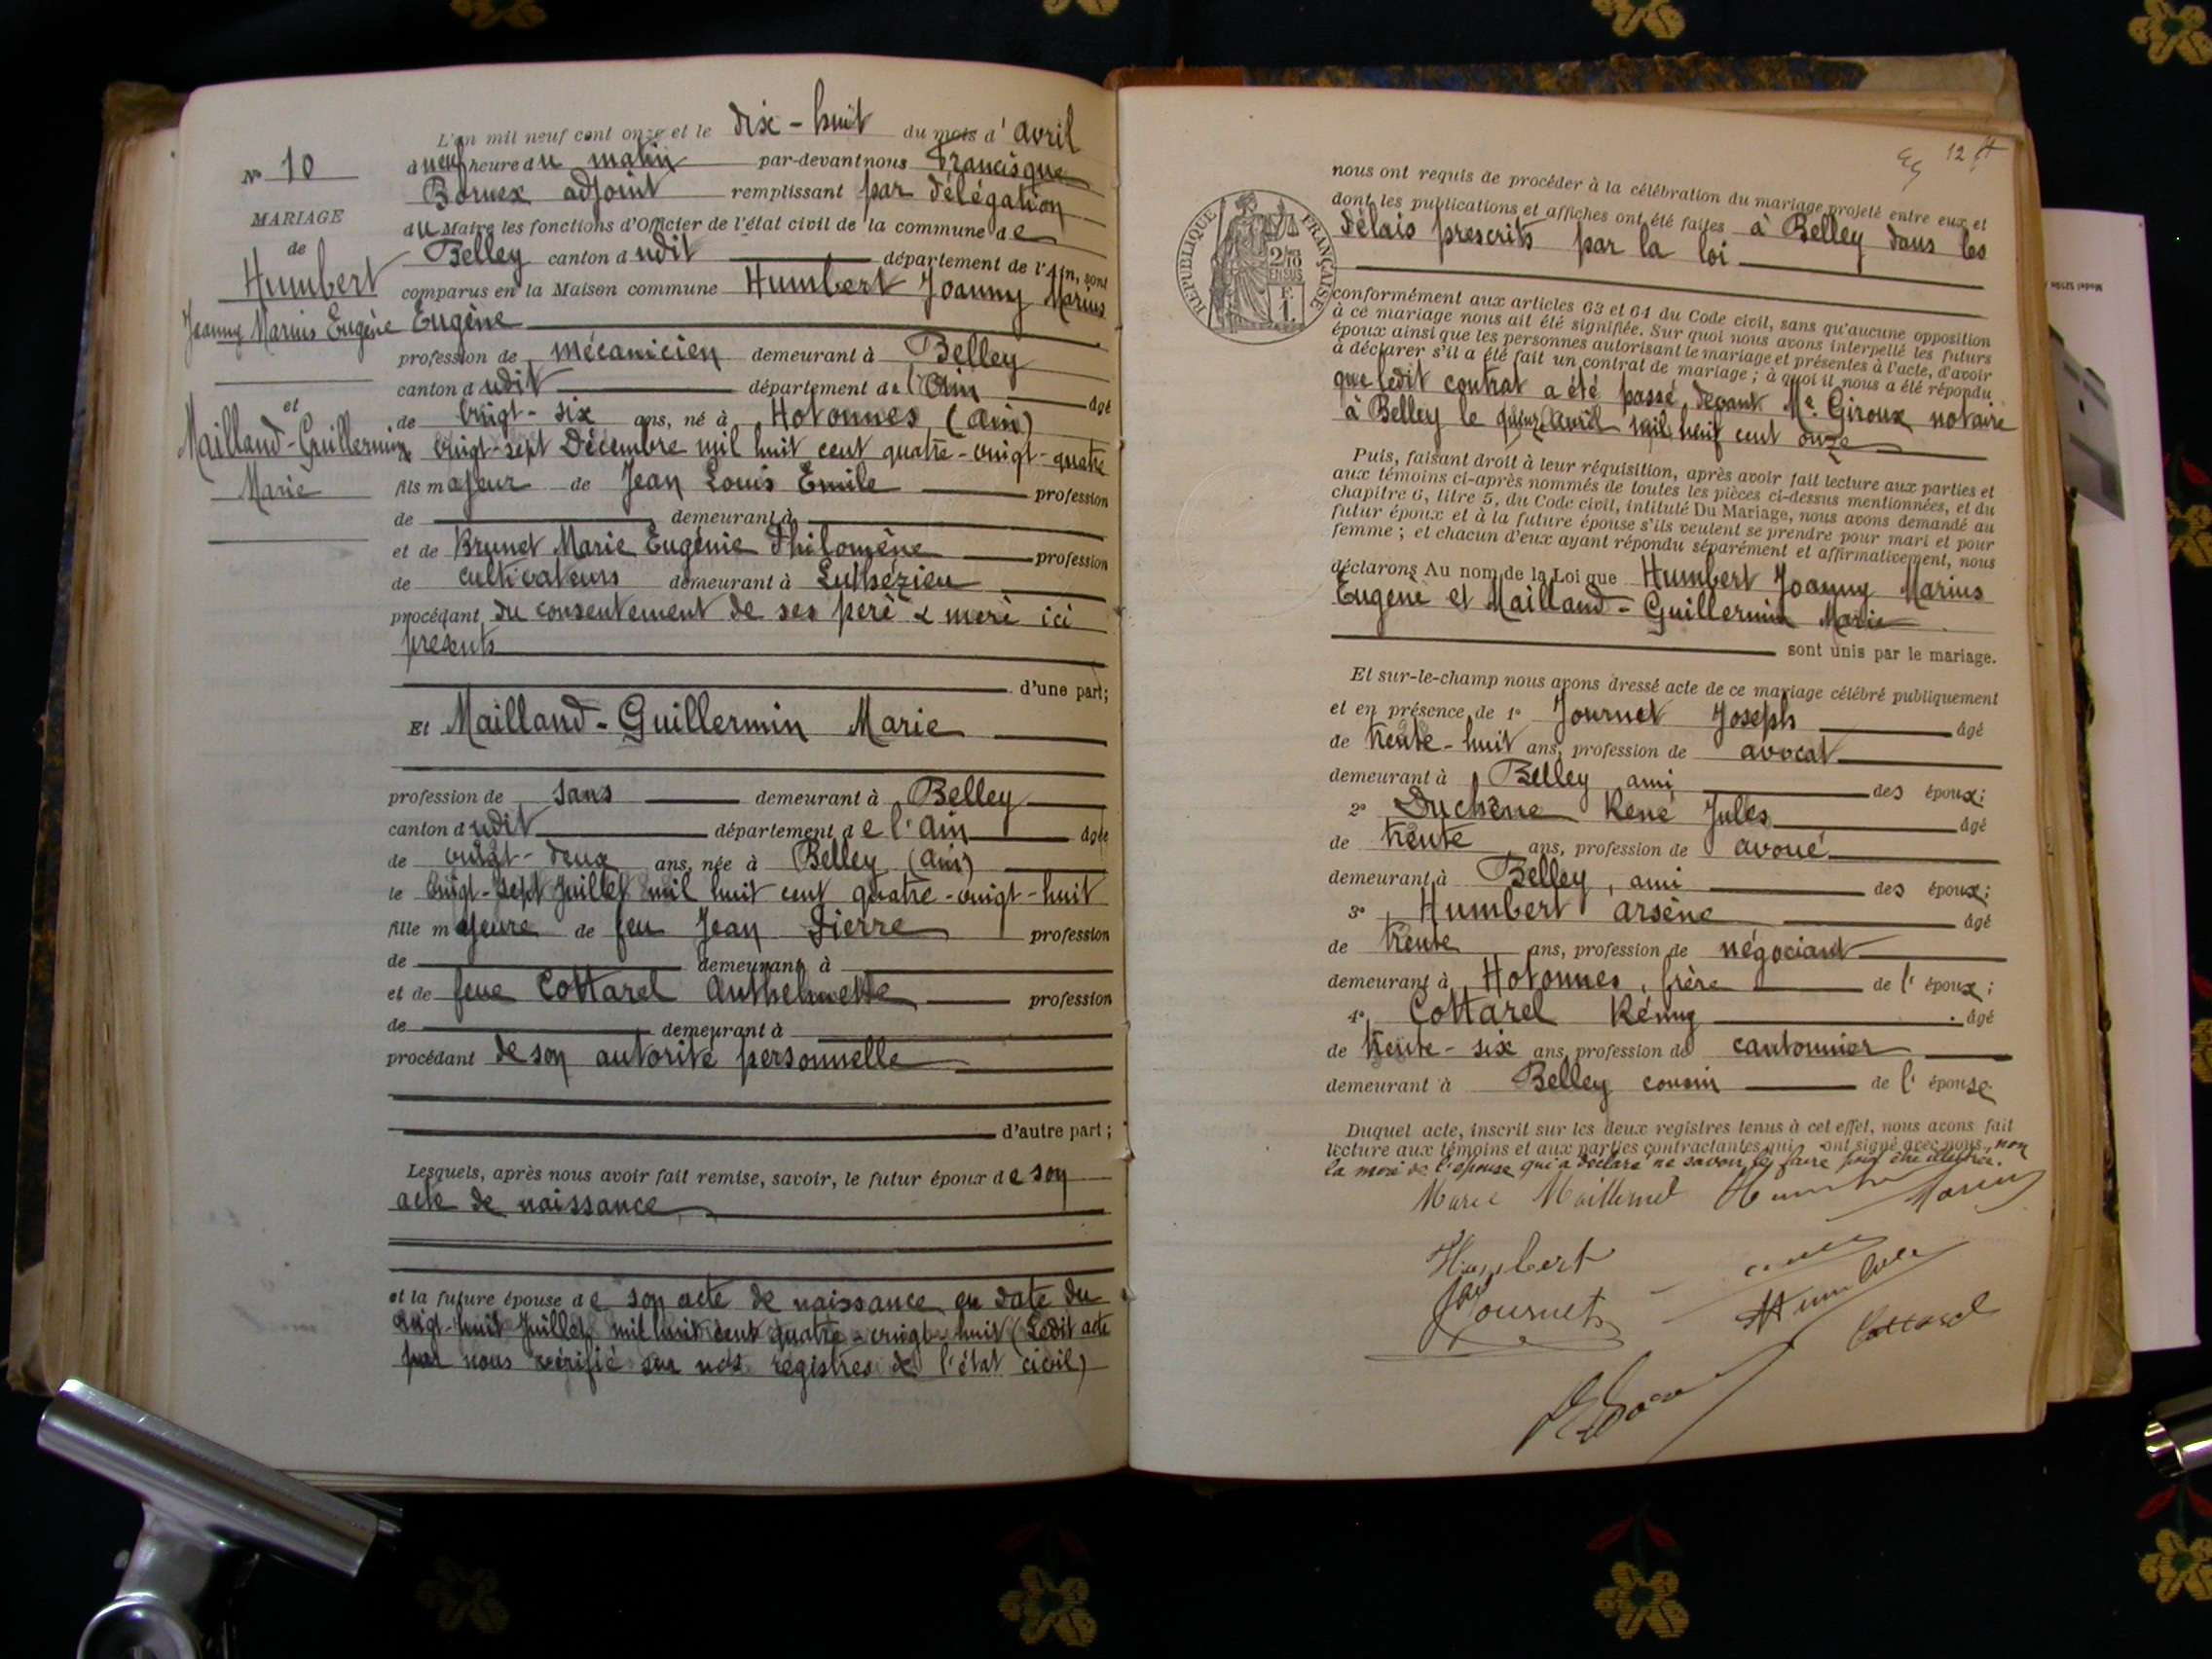 L'an mil neuf cent onze et le dix-huit du mois d'avril
à neuf heure du matin par-devant nous Francisque
Bornex adjoint remplissant par délégation
du Maire les fonctions d'Officier de l'état civil de la commune de
Belley canton dudit département de l'Ain, sont
comparus en la Maison commune Humbert Joanny Marius
Eugène
profession de mécanicien demeurant à Belley
canton dudit département de l'Ain âgé
de vingt-six ans, né à Hotonnes (Ain)
vingt-sept Décembre mil huit cent quatre-vingt-quatre
fils majeur de Jean Louis Emile profession
de demeurant à
et de Brunet Marie Eugénie Philomène profession
de cultivateurs demeurant à Luthézieu
procédant du consentement de ses père & mère ici
présents
d'une part;
Et Mailland-Guillermin Marie
profession de sans demeurant à Belley
canton dudit département de l'Ain âgée
de vingt-deux ans, née à Belley (Ain)
le vingt-sept Juillet mil huit cent quatre-vingt-huit
fille majeure de feu Jean Pierre profession
de demeurant à
et de feue Cottarel Anthelmette profession
de demeurant à
procédant de son autorité personnelle
d'autre part;
Lesquels, après nous avoir fait remise, savoir, le futur époux de son
acte de naissance
et la future épouse de son acte de naissance en date du
vingt-huit Juillet mil huit cent quatre-vingt-huit (Ledit acte
par nous vérifié sur nos registres de l'état civil)
N° 10
MARIAGE
de
Humbert
Joanny Marius Eugène
et
Mailland-Guillermin
Marie
12
nous ont requis de procéder à la célébration du mariage projeté entre eux et
dont les publications et affiches ont été faites à Belley dans les
délais prescrits par la loi
RÉPUBLIQUE FRANÇAISE
2/10
EN SUS
F.
1.
conformément aux articles 63 et 64 du Code civil, sans qu'aucune opposition
à ce mariage nous ait été signifiée. Sur quoi nous avons interpellé les futurs
époux ainsi que les personnes autorisant le mariage et présentes à l'acte, d'avoir
à déclarer s'il a été fait un contrat de mariage; à quoi il nous a été répondu
que ledit contrat a été passé devant Me. Giroux notaire
à Belley le quinze avril mil neuf cent onze
Puis, faisant droit à leur réquisition, après avoir fait lecture aux parties et
aux témoins ci-après nommés de toutes les pièces ci-dessus mentionnées, et du
chapitre 6, titre 5, du Code civil, intitulé Du Mariage, nous avons demandé au
futur époux et à la future épouse s'ils veulent se prendre pour mari et pour
femme; et chacun d'eux ayant répondu séparément et affirmativement, nous
déclarons Au nom de la Loi que Humbert Joanny Marius
Eugène et Mailland-Guillermin Marie
sont unis par le mariage.
Et sur-le-champ nous avons dressé acte de ce mariage célébré publiquement
et en présence de 1° Journet Joseph âgé
de trente-huit ans, profession de avocat
demeurant à Belley ami des époux;
2° Duchêne René Jules âgé
de trente ans, profession de avoué
demeurant à Belley, ami des époux;
3° Humbert Arsène âgé
de trente ans, profession de négociant
demeurant à Hotonnes, frère de l'époux;
4° Cottarel Rémy âgé
de trente-six ans, profession de cantonnier
demeurant à Belley cousin de l'épouse
Duquel acte, inscrit sur les deux registres tenus à cet effet, nous avons fait
lecture aux témoins et aux parties contractantes qui ont signé avec nous, non
la mère de l'épouse qui a déclaré ne savoir le faire pour être illettrée.
Marie
Humbert
Journet
Cottarel